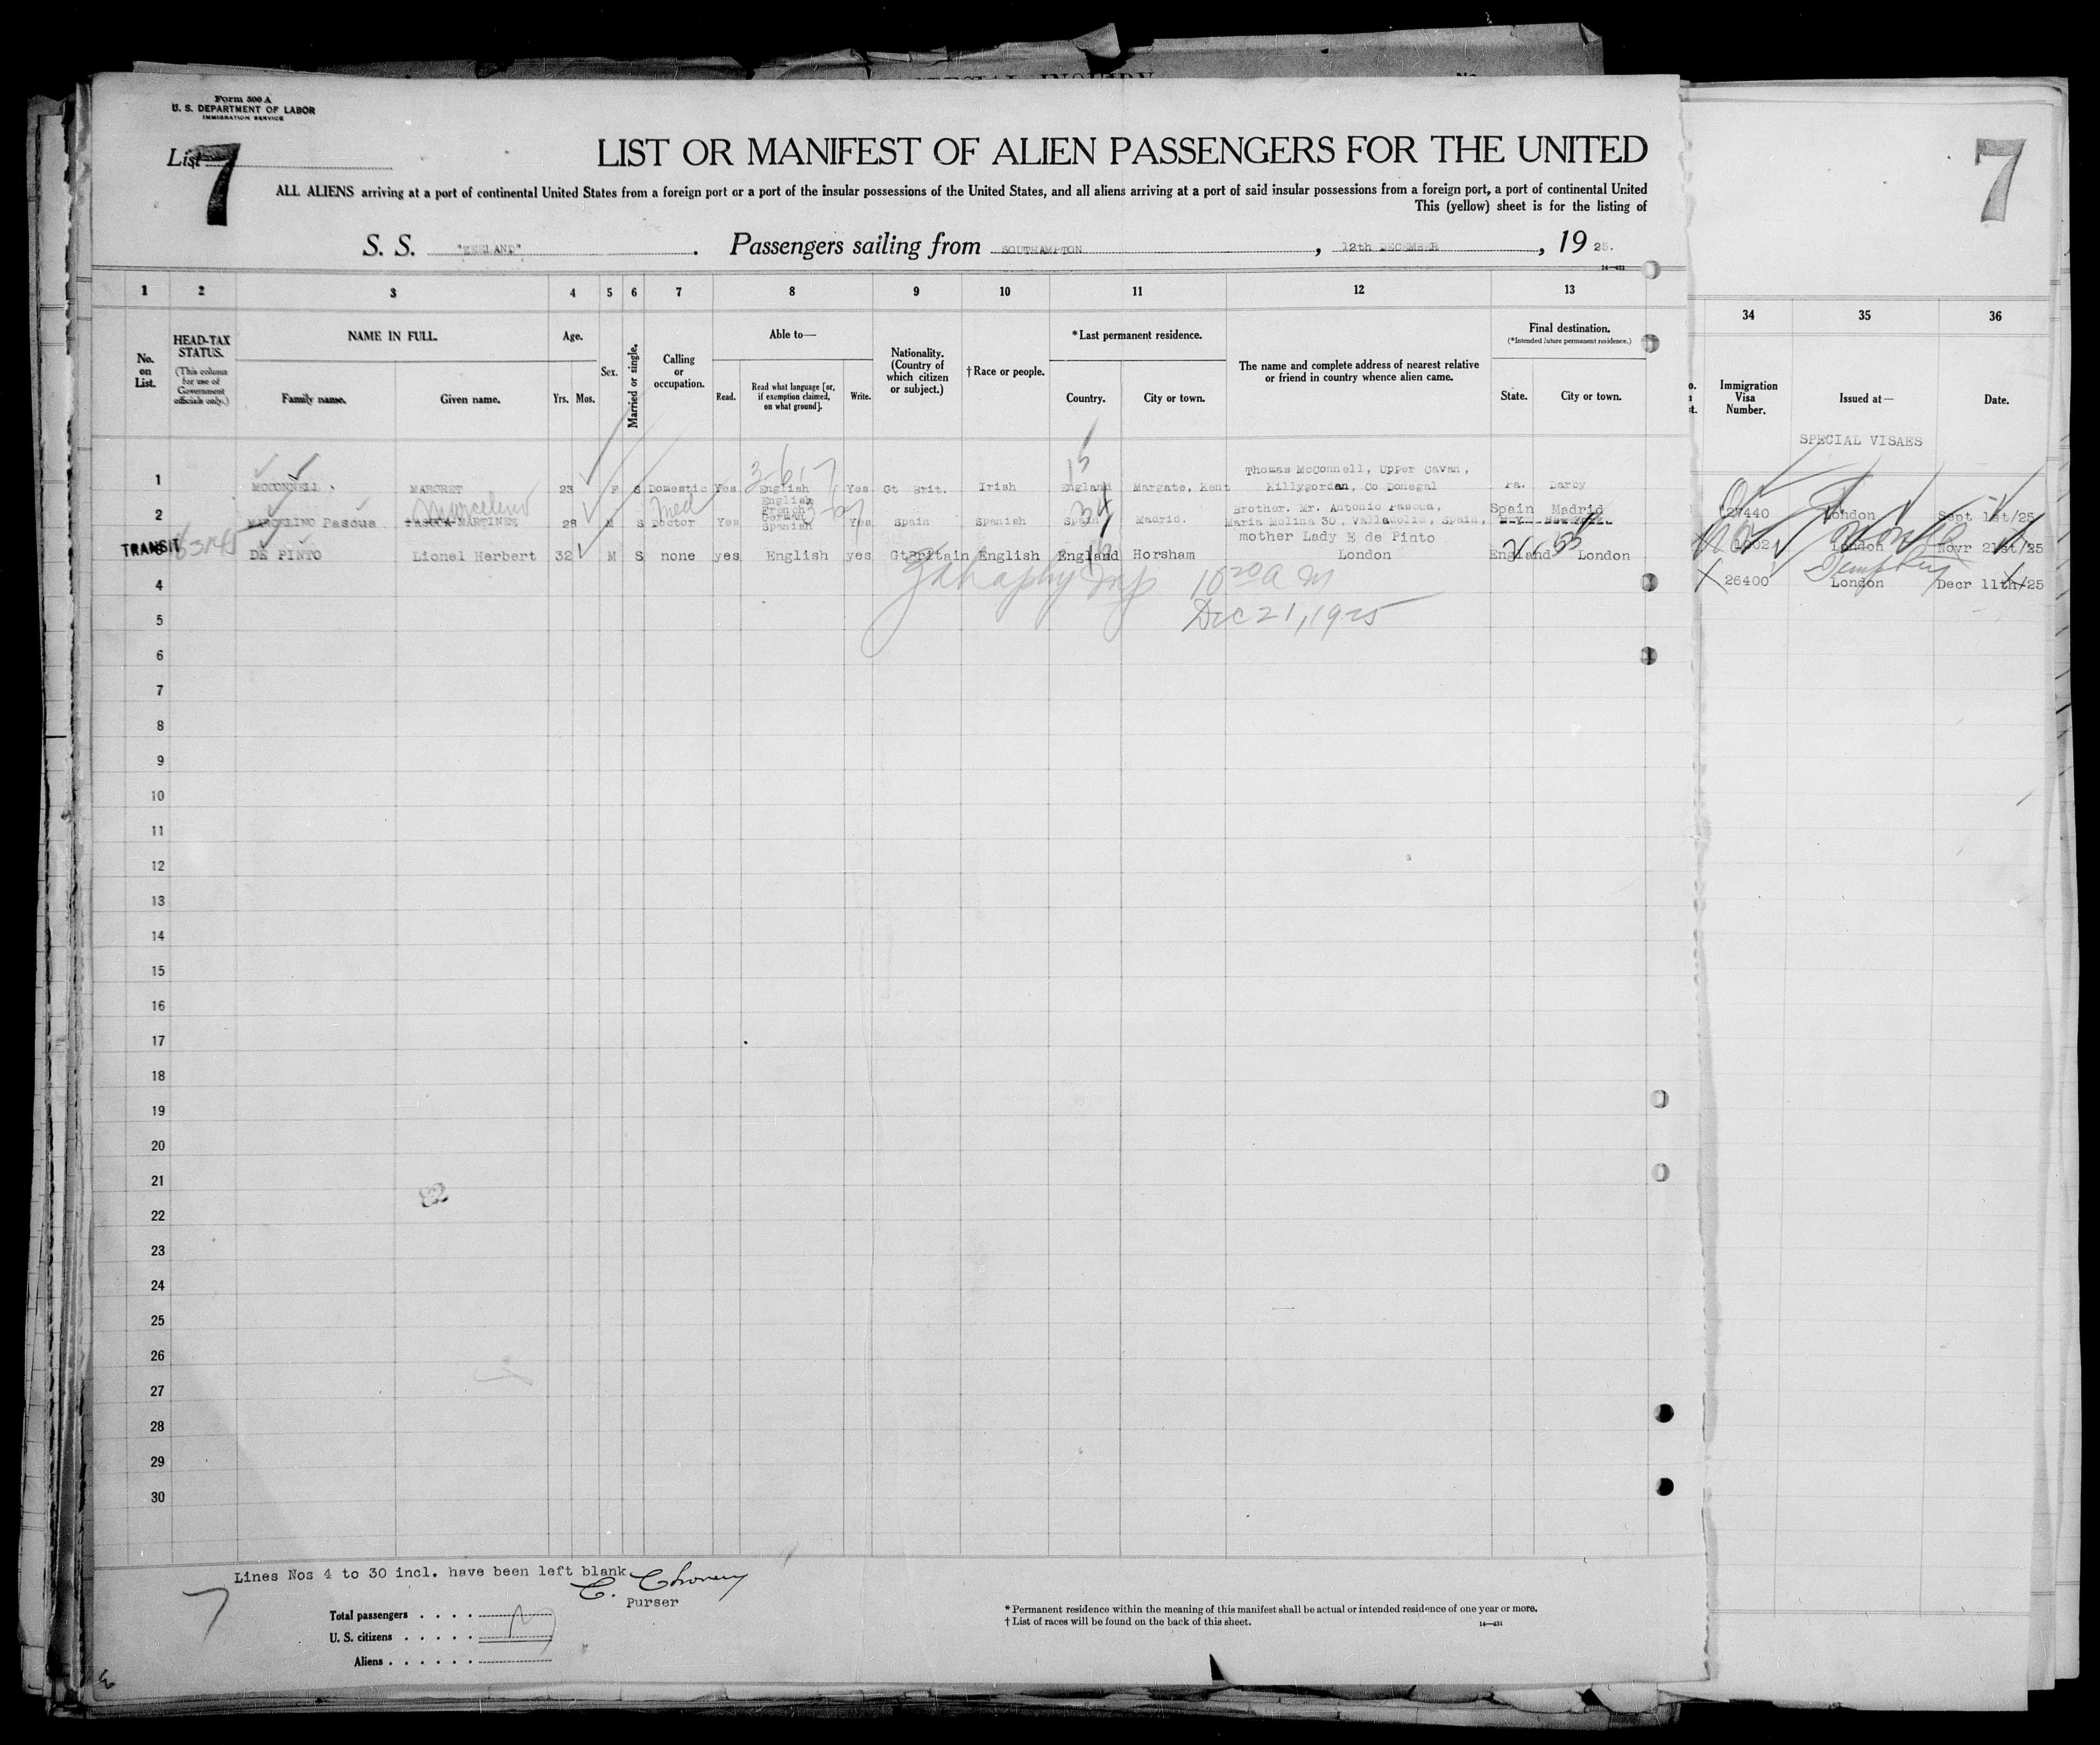 SPECIAL INQUIRY
No.
Form 500 A
U. S. DEPARTMENT OF LABOR
IMMIGRATION SERVICE
List 7
LIST OR MANIFEST OF ALIEN PASSENGERS FOR THE UNITED
ALL ALIENS arriving at a port of continental United States from a foreign port or a port of the insular possessions of the United States, and all aliens arriving at a port of said insular possessions from a foreign port, a port of continental United
This (yellow) sheet is for the listing of
S. S. "ZEELAND". Passengers sailing from SOUTHAMPTON, 12th DECEMBER, 19 25.
14—431
1 2 3 4 5 6 7 8 9 10 11 12 13
No. on List.
HEAD-TAX STATUS.
(This column for use of Government officials only.)
NAME IN FULL.
Family name. Given name.
Age.
Yrs. Mos.
Sex.
Married or single.
Calling or occupation.
Able to—
Read. Read what language [or, if exemption claimed, on what ground]. Write.
Nationality. (Country of which citizen or subject.)
†Race or people.
*Last permanent residence.
Country. City or town.
The name and complete address of nearest relative or friend in country whence alien came.
Final destination.
(*Intended future permanent residence.)
State. City or town.
3-6-7
15
Thomas McConnell, Upper Cavan,
1 MCCONNELL MARGRET 23 F S Domestic Yes English Yes Gt Brit. Irish England Margate, Kent Killygordan, Co Donegal Pa. Darby
Marcelino Med English French German
Brother. Mr. Antonio Pascua, Spain Madrid
2 MARCELINO Pascua PASCUA-MARTINEZ 28 M S Doctor Yes Spanish Yes Spain Spanish Spain Madrid. Maria Molina 30, Valladolid, Spain, N.Y. New York.
mother Lady E de Pinto
TRANSIT DE PINTO Lionel Herbert 32 M S none yes English yes GtBritain English England Horsham London England London
4
10 20 a m
5
Dec 21, 1925
6
7
8
9
10
11
12
13
14
15
16
17
18
19
20
21
22
23
24
25
26
27
28
29
30
Lines Nos 4 to 30 incl. have been left blank
Purser
7
Total passengers . . . .
U. S. citizens . . . . .
Aliens . . . . . .
*Permanent residence within the meaning of this manifest shall be actual or intended residence of one year or more.
†List of races will be found on the back of this sheet.
14—431
7
34 35 36
Immigration Visa Number.
Issued at—
Date.
SPECIAL VISAES
27440 London Sept 1st/25
London Novr 21st/25
26400 London Decr 11th/25